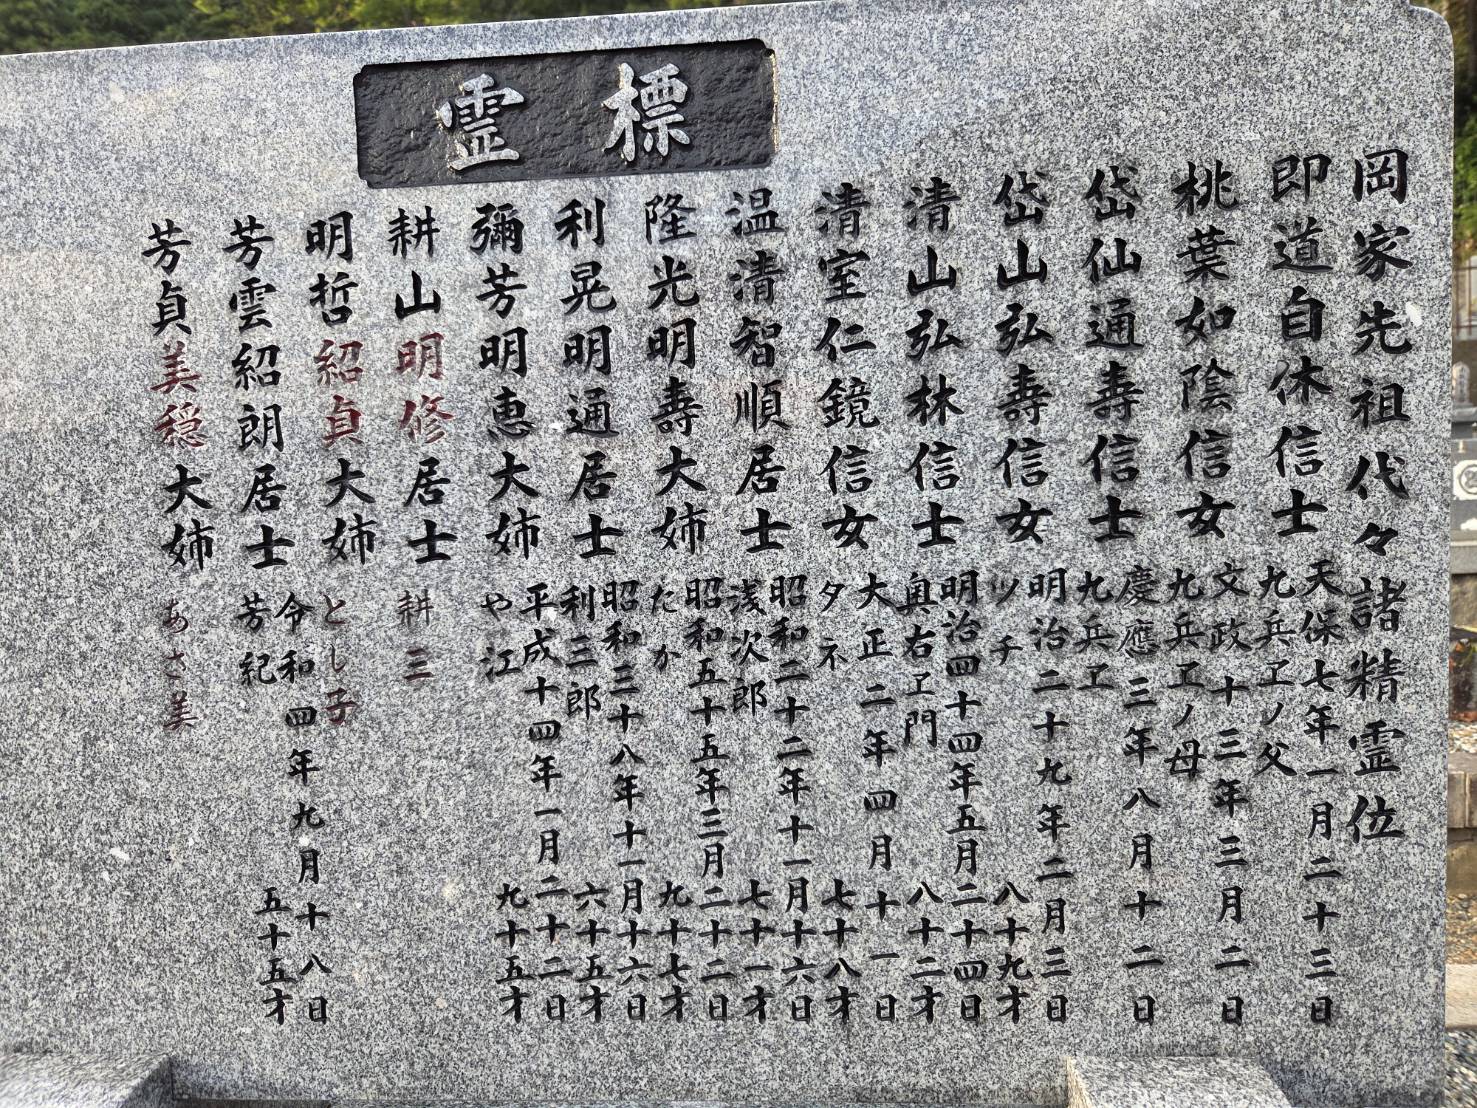 霊標
岡家先祖代々諸精霊位
即道自休信士
天保七年一月二十三日
九兵ヱノ父
桃葉如陰信女
文政十三年三月二日
九兵ヱノ母
岱仙通壽信士
慶應三年八月十二日
九兵ヱ
岱山弘壽信女
明治二十九年二月三日
ツチ 八十九才
清山弘林信士
明治四十四年五月二十四日
奥右ヱ門 八十二才
清室仁鏡信女
大正二年四月十一日
タネ 七十八才
温清智順居士
昭和二十二年十一月十六日
浅次郎 七十一才
隆光明壽大姉
昭和五十五年三月二十二日
たか 九十七才
利晃明通居士
昭和三十八年十一月十六日
利三郎 六十五才
彌芳明恵大姉
平成十四年一月二十二日
や江 九十五才
耕山明修居士
耕三
明哲紹貞大姉
とし子
芳雲紹朗居士
令和四年九月十八日
芳紀 五十五才
芳貞美穏大姉
あさ美